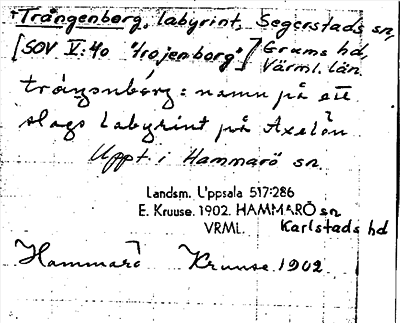 †Trångenborg, labyrint, Segerstads sn,
[SOV V:40 "trojenborg"] Grums hd,
Värml. län.
namn på ett
slags labyrint på Axelön
Uppt. i Hammarö sn.
Landsm. Uppsala 517:286
E. Kruuse. 1902. HAMMARÖ sn
VRML. Karlstads hd
Hammarö Kruuse 1902